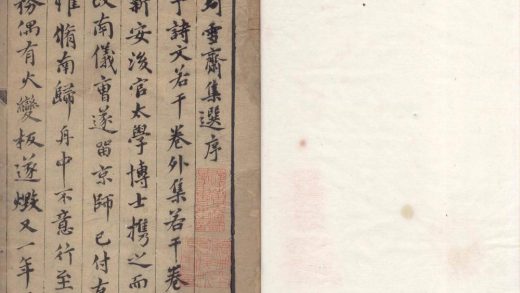 珂雪齋集選序
予詩文若干卷外集若干卷
新安後官太學博士攜之而
改南儀曹遂留京師已付友
惟脩南歸舟中不意行至
務偶有火變板遂燬又一年